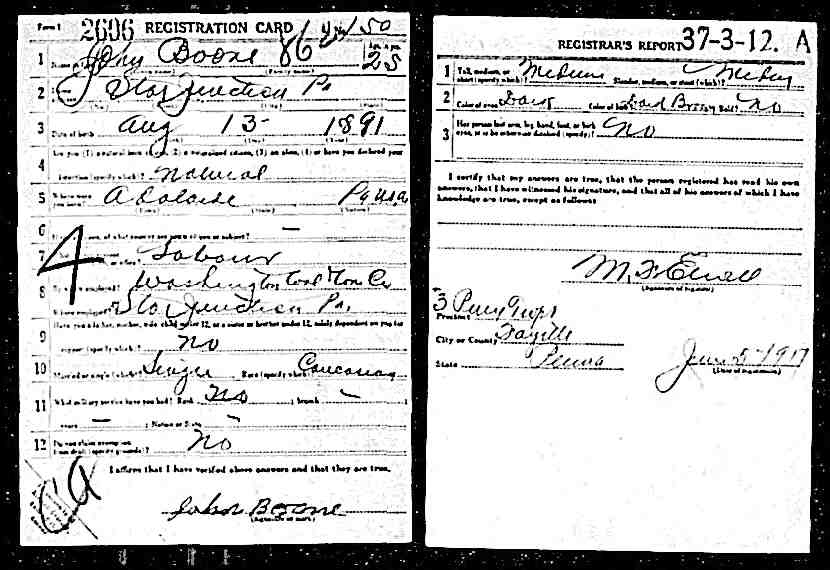 Form 1 2606 REGISTRATION CARD No. 150
1 John Boone 86 Age, in yrs. 25
2 Star Junction Pa
3 Date of birth Aug 13 1891
4 Are you (1) a natural born citizen, (2) a naturalized citizen, (3) an alien, (4) or have you declared your
intention (specify which)? Natural
5 Where were you born? Adalaide Pa U.S.A.
6 —
4
7 Labour
8 Washington Coal & Coke Co
Where employed? Star Junction Pa.
9 Have you a father, mother, wife, child under 12, or a sister or brother under 12, solely dependent on you for
support (specify which)? No
10 Married or single (which)? Single Race (specify which)? Caucasian
11 What military service have you had? Rank No ; branch —
years — ; Nation or State —
12 Do you claim exemption from draft (specify grounds)? No
I affirm that I have verified above answers and that they are true.
John Boone
(Signature or mark)
REGISTRAR'S REPORT 37-3-12. A
1 Tall, medium, or short (specify which)? Medium Slender, medium, or stout (which)? Medium
2 Color of eyes Dark Color of hair Dark Brown Bald? No
3 Has person lost arm, leg, hand, foot, or both eyes, or is he otherwise disabled (specify)? No
I certify that my answers are true, that the person registered has read his own
answers, that I have witnessed his signature, and that all of his answers of which I have
knowledge are true, except as follows:
(Signature of registrar)
Precinct 3 Perry Twp
City or County Fayette
State Penna June 5-1917
(Date of registration)